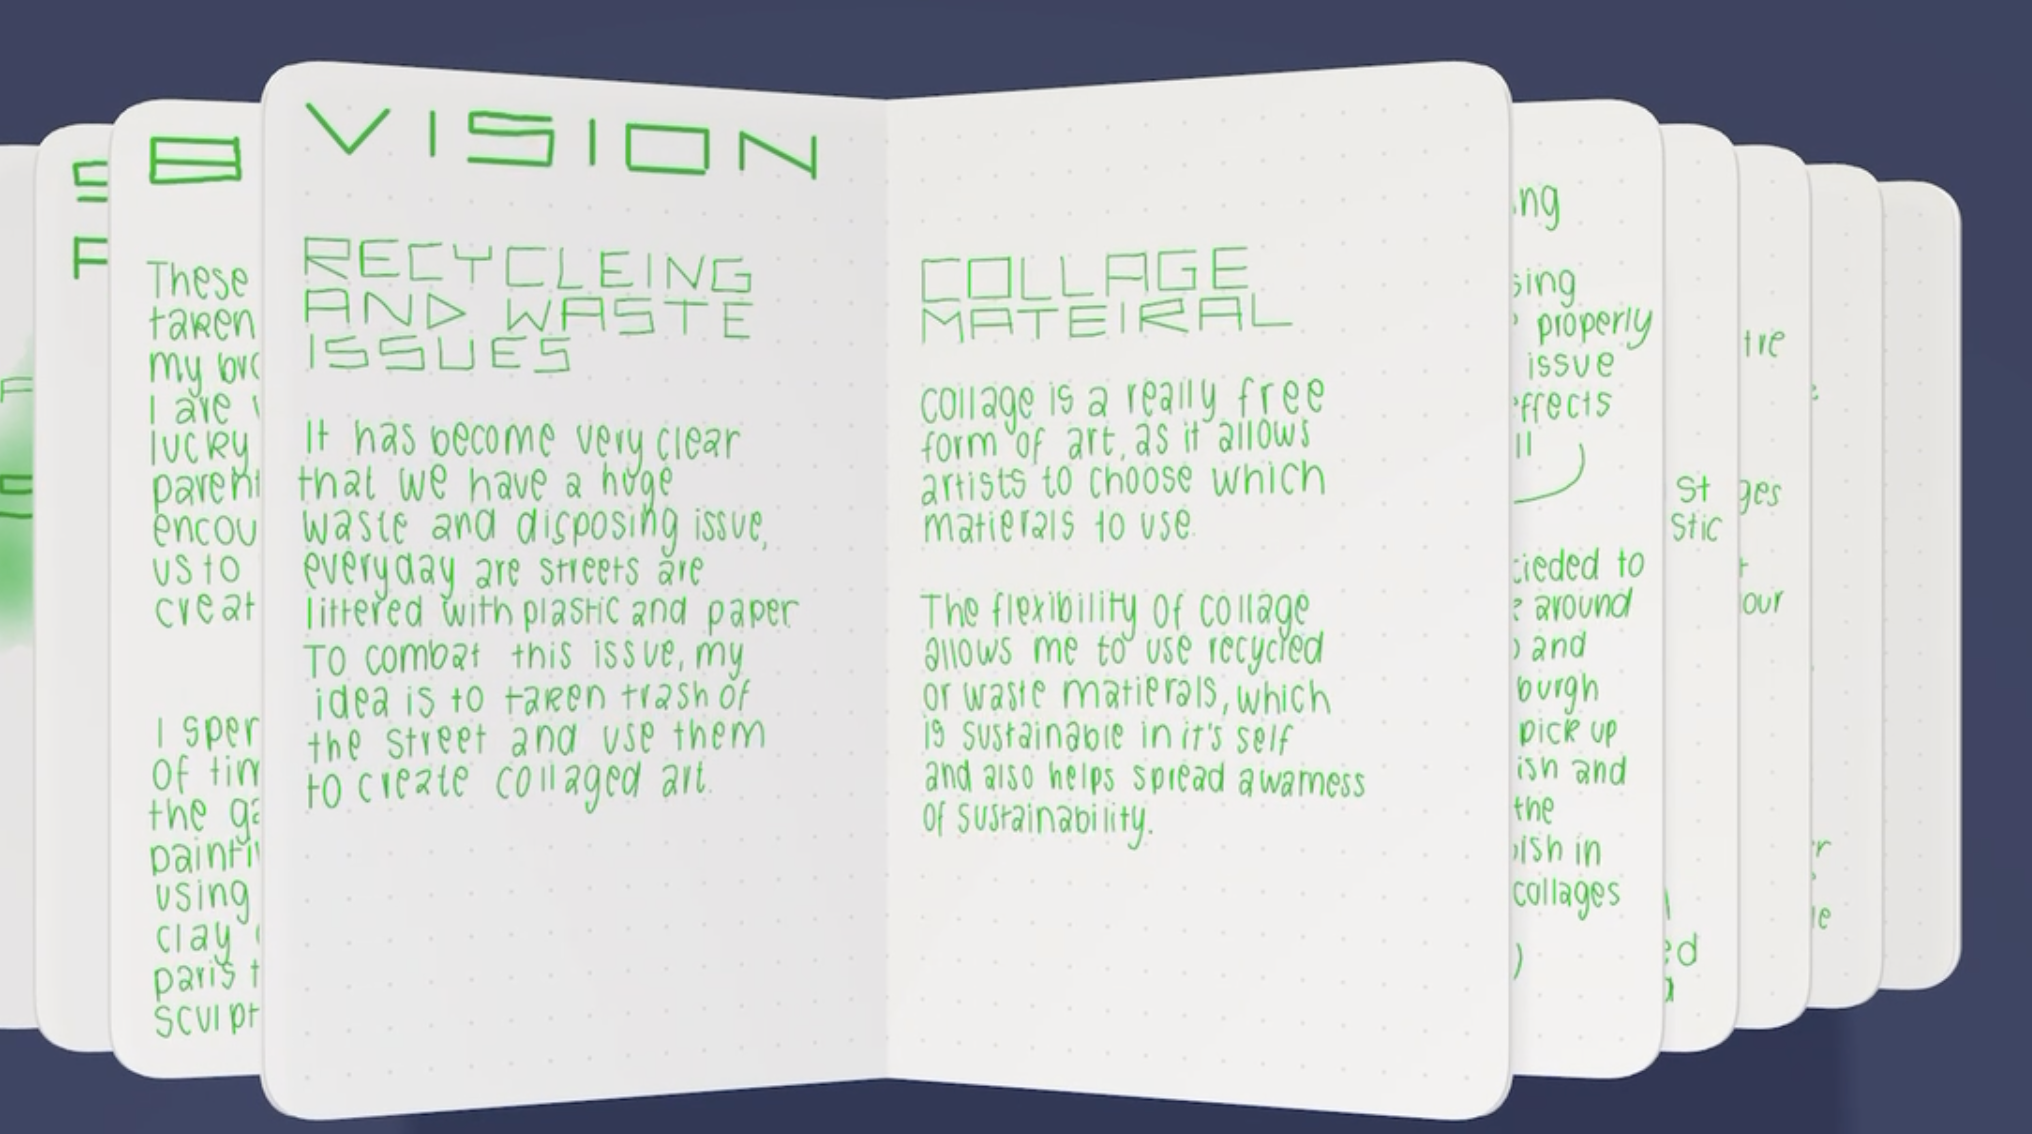 VISION
RECYCLEING
AND WASTE
ISSUES
It has become very clear
that we have a huge
waste and disposing issue,
everyday are streets are
littered with plastic and paper.
To combat this issue, my
idea is to taken trash of
the street and use them
to create collaged art.
COLLAGE
MATEIRAL
collage is a really free
form of art, as it allows
artists to choose which
matierals to use.
The flexibility of collage
allows me to use recycled
or waste matierals, which
is sustainable in it's self
and also helps spread awarness
of sustainability.
B
These
taken
my bro
I are
lucky
parent
encou
us to
creat
I spen
of tim
the ga
painti
using
clay
paris t
sculpt
ng
sing
properly
issue
ffects
ll
cieded to
around
and
burgh
pick up
ish and
the
ish in
collages
)
st
stic
ed
a
tre
ges
t
our
r
e